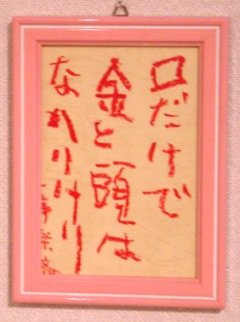 口だけで
金と頭は
なかりけり